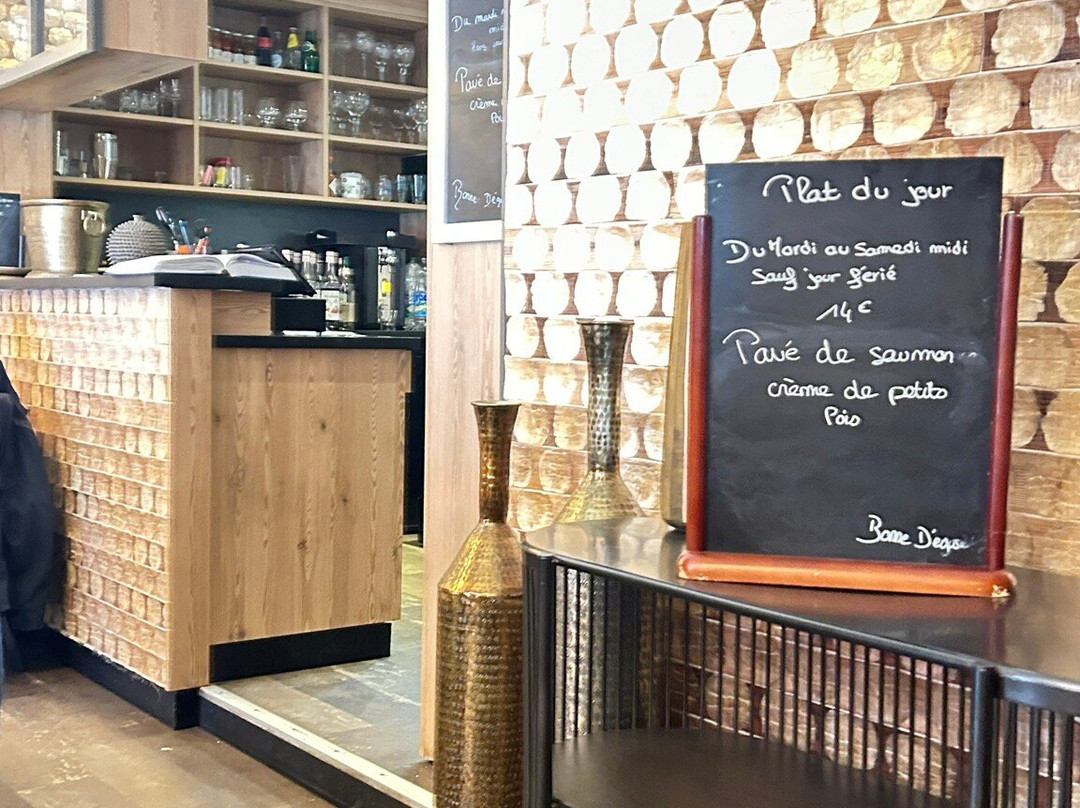 Du mardi
mi
Pavé de
crème
Po
Bonne Dég
Plat du jour
Du Mardi au Samedi midi
sauf jour férié
14€
Pavé de saumon
crème de petits
Pois
Bonne Dégus